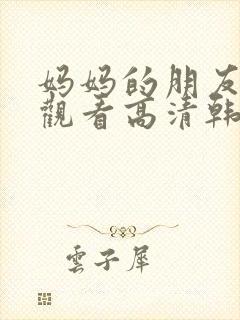 妈妈的朋友
觀看高清韩
雲子犀